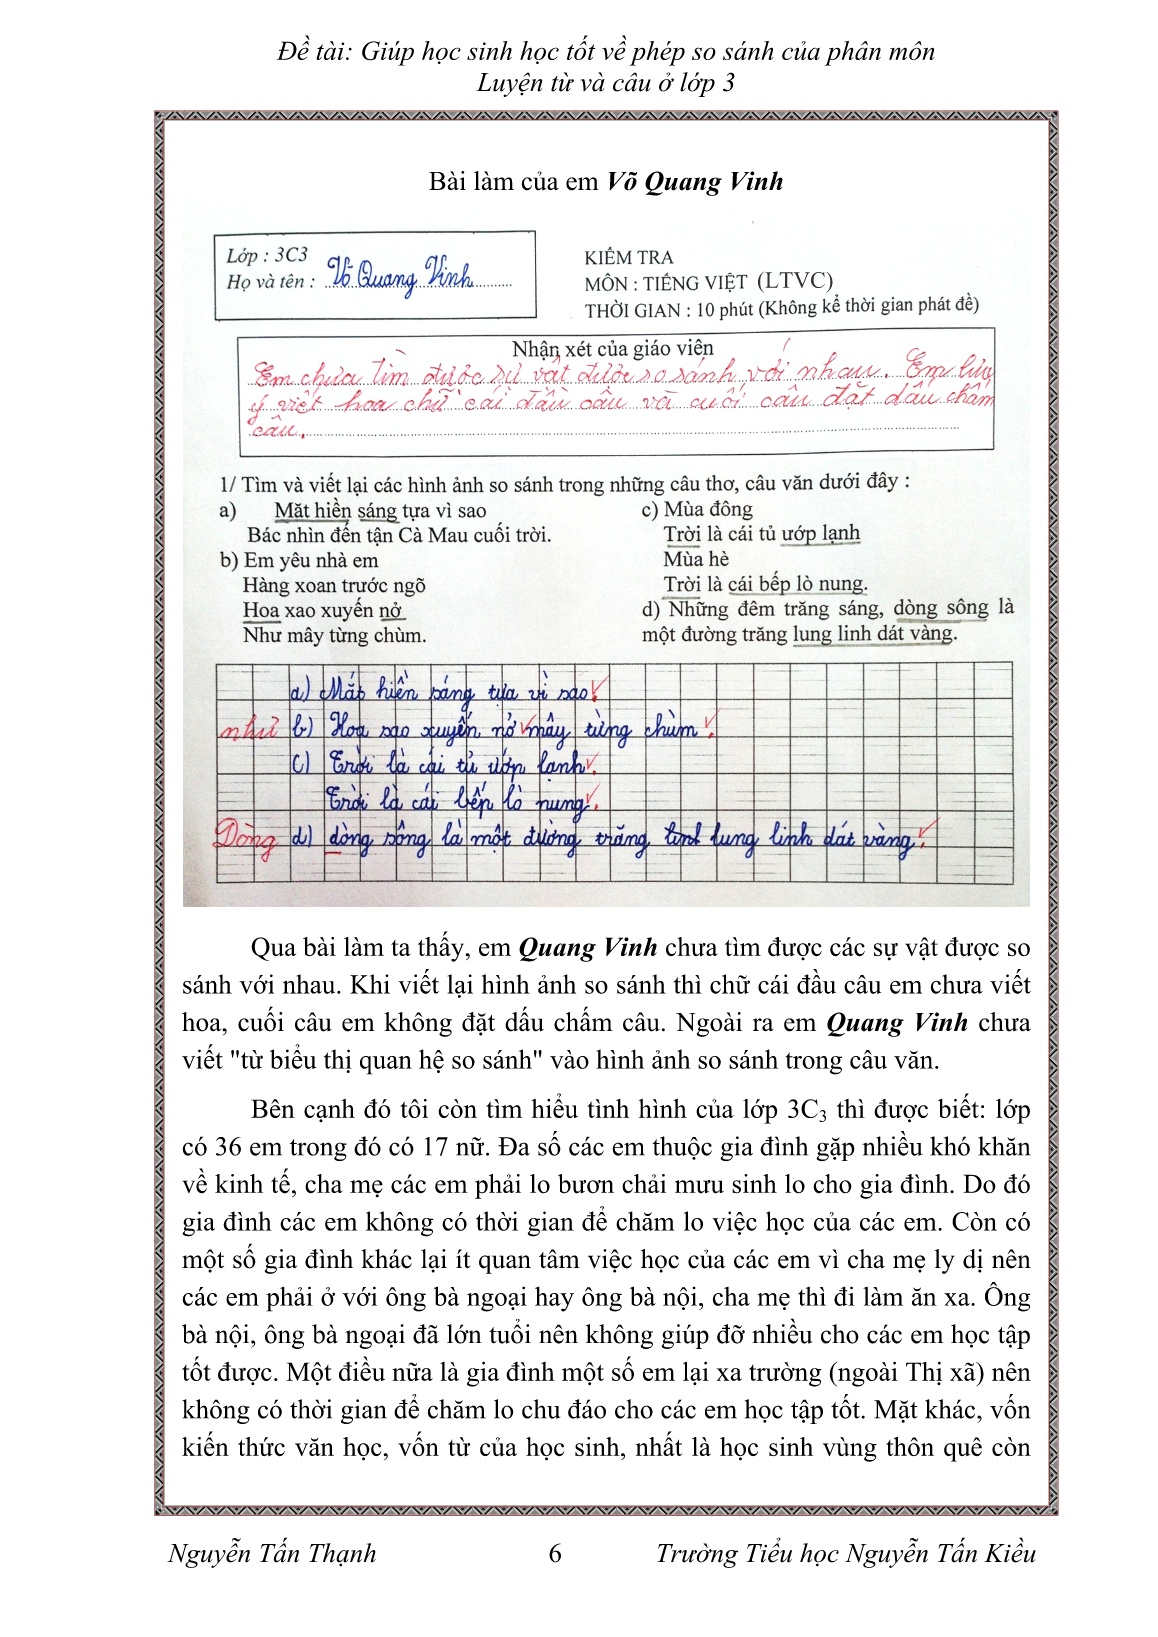 Đề tài: Giúp học sinh học tốt về phép so sánh của phân môn
Luyện từ và câu ở lớp 3
Bài làm của em Võ Quang Vinh
Lớp : 3C3
Họ và tên : Võ Quang Vinh
KIỂM TRA
MÔN : TIẾNG VIỆT (LTVC)
THỜI GIAN : 10 phút (Không kể thời gian phát đề)
Nhận xét của giáo viên
Em chưa tìm được sự vật được so sánh với nhau. Em lưu
ý viết hoa chữ cái đầu câu và cuối câu đặt dấu chấm
câu.
1/ Tìm và viết lại các hình ảnh so sánh trong những câu thơ, câu văn dưới đây :
a) Mắt hiền sáng tựa vì sao
Bác nhìn đến tận Cà Mau cuối trời.
b) Em yêu nhà em
Hàng xoan trước ngõ
Hoa xao xuyến nở
Như mây từng chùm.
c) Mùa đông
Trời là cái tủ ướp lạnh
Mùa hè
Trời là cái bếp lò nung.
d) Những đêm trăng sáng, dòng sông là
một đường trăng lung linh dát vàng.
a) Mắt hiền sáng tựa vì sao.
như b) Hoa sao xuyến nở mây từng chùm.
c) Trời là cái tủ ướp lạnh.
Trời là cái bếp lò nung.
Dòng d) dòng sông là một đường trăng lung linh dát vàng.
Qua bài làm ta thấy, em Quang Vinh chưa tìm được các sự vật được so
sánh với nhau. Khi viết lại hình ảnh so sánh thì chữ cái đầu câu em chưa viết
hoa, cuối câu em không đặt dấu chấm câu. Ngoài ra em Quang Vinh chưa
viết "từ biểu thị quan hệ so sánh" vào hình ảnh so sánh trong câu văn.
Bên cạnh đó tôi còn tìm hiểu tình hình của lớp 3C3 thì được biết: lớp
có 36 em trong đó có 17 nữ. Đa số các em thuộc gia đình gặp nhiều khó khăn
về kinh tế, cha mẹ các em phải lo bươn chải mưu sinh lo cho gia đình. Do đó
gia đình các em không có thời gian để chăm lo việc học của các em. Còn có
một số gia đình khác lại ít quan tâm việc học của các em vì cha mẹ ly dị nên
các em phải ở với ông bà ngoại hay ông bà nội, cha mẹ thì đi làm ăn xa. Ông
bà nội, ông bà ngoại đã lớn tuổi nên không giúp đỡ nhiều cho các em học tập
tốt được. Một điều nữa là gia đình một số em lại xa trường (ngoài Thị xã) nên
không có thời gian để chăm lo chu đáo cho các em học tập tốt. Mặt khác, vốn
kiến thức văn học, vốn từ của học sinh, nhất là học sinh vùng thôn quê còn
Nguyễn Tấn Thạnh 6 Trường Tiểu học Nguyễn Tấn Kiều